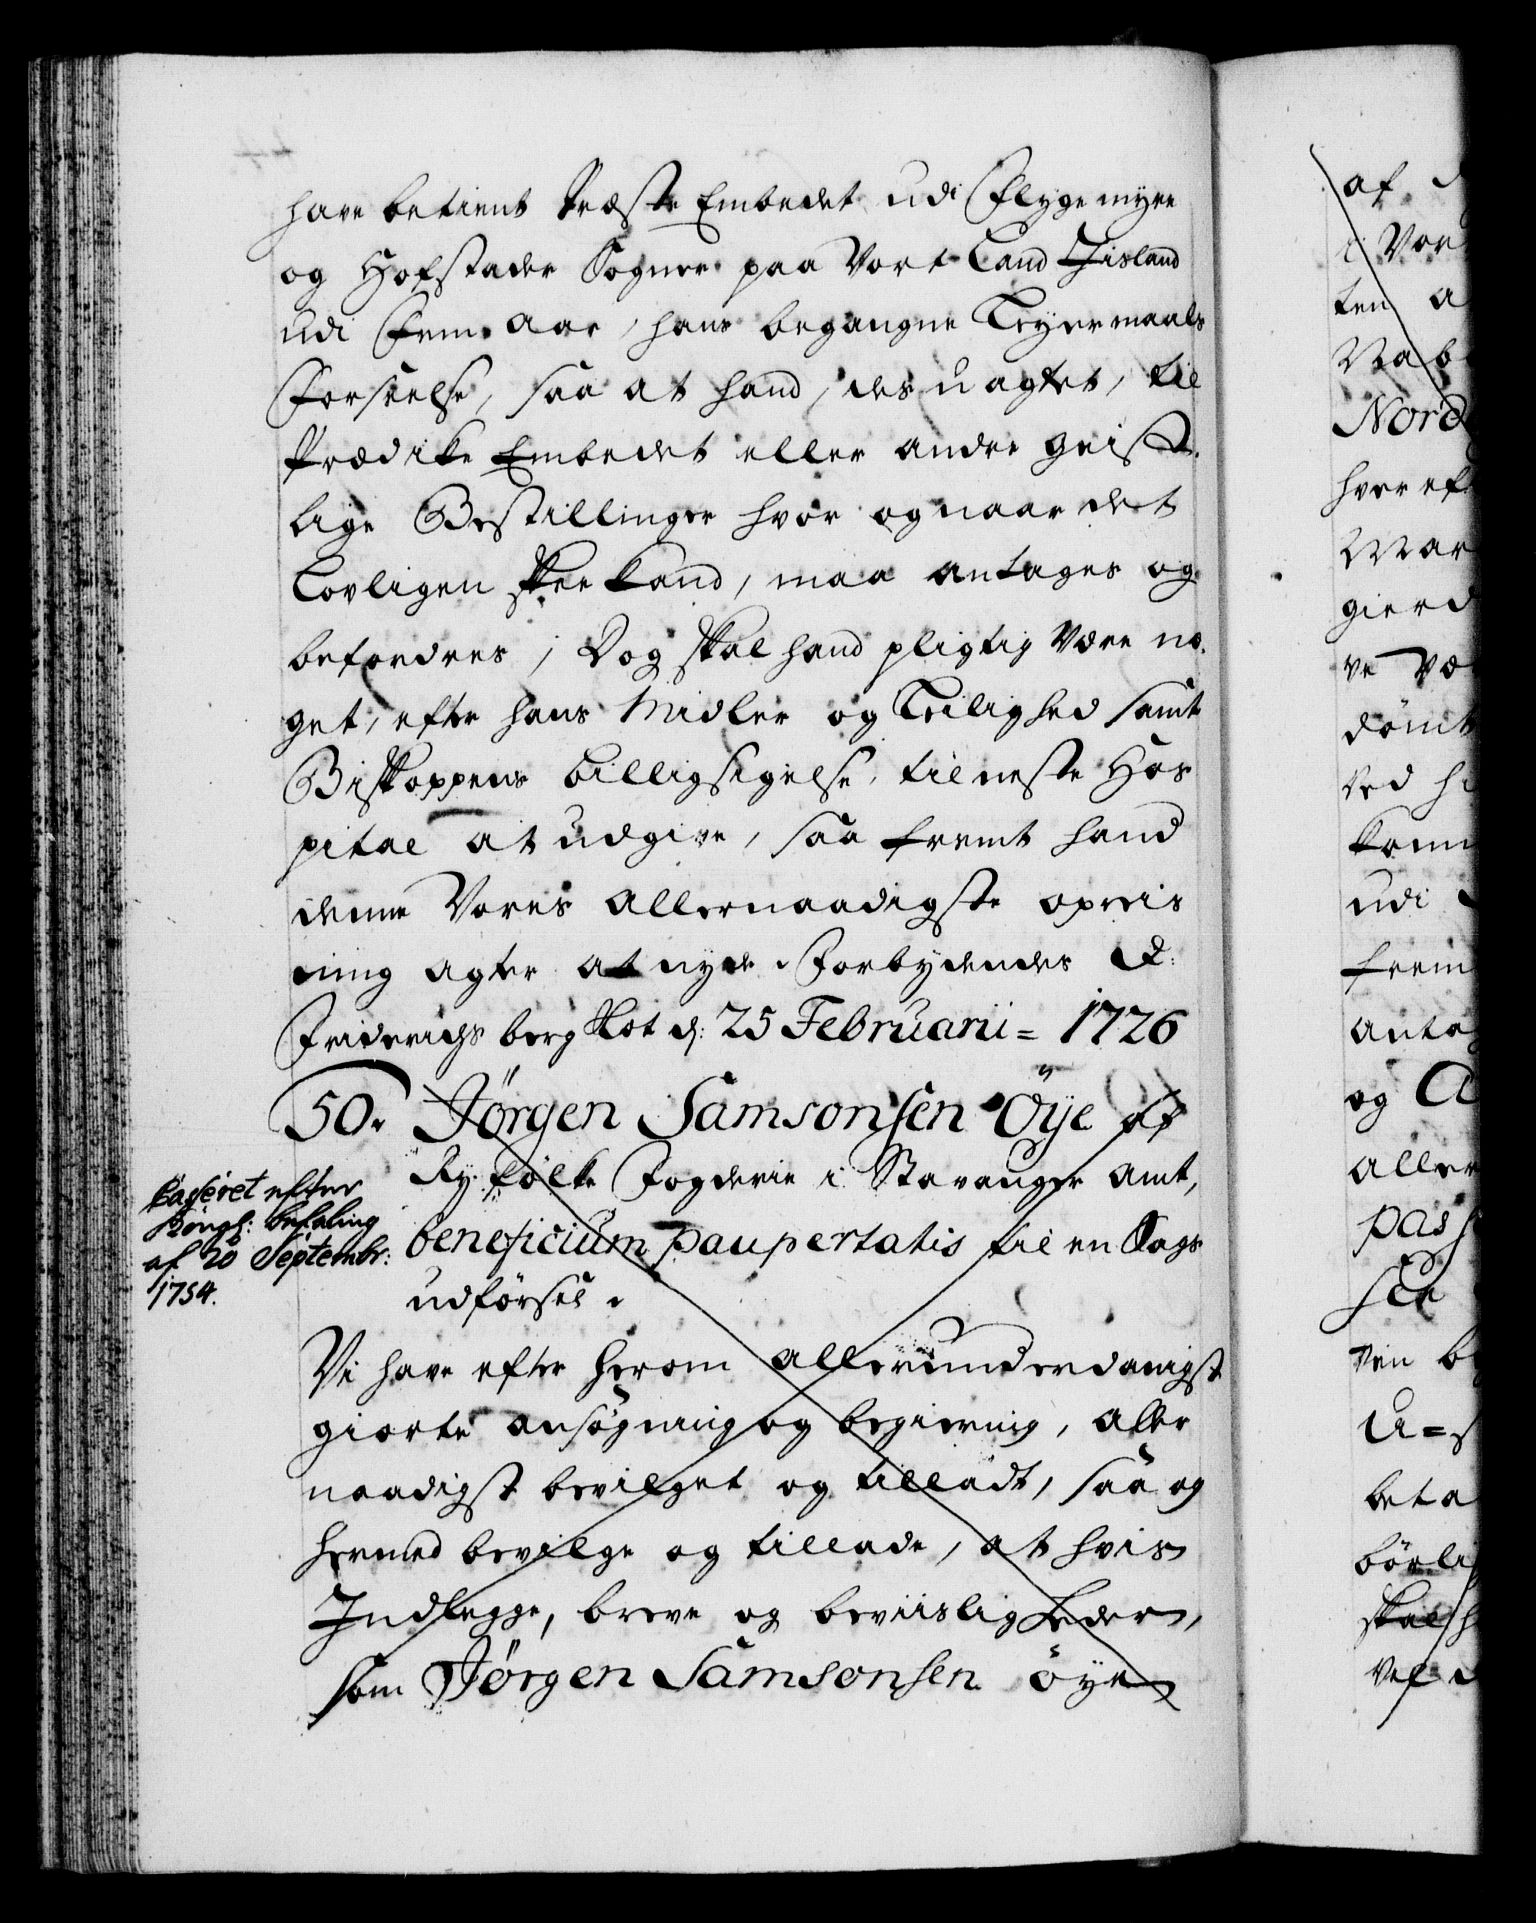 have betient Præste Embedet udi Flygemyre
og Hofstader Sogner paa Vort Land Iisland
udi Fem Aar, hans begangne Leyermaals
Forseelse, saa at hand, des uagtet, til
Prædike Embedet eller andre geist-
lige Bestillinger hvor og naar det
Lovligen skee kand, maa antages og
befordres; Dog skal hand pligtig være no-
get, efter hans Midler og Leilighed samt
Biskoppens billigsigelse, til neste Hos
pital at udgive, saa fremt hand
denne Vores Allernaadigste opreis
ning agter at nyde. Forbydendes &:
Friderichsberg Slot d: 25 Februarii = 1726
50. Jørgen Samsonsen Öye af
Ryfølke Fogderie i Stavanger Amt,
beneficium paupertatis til en Sags
udførsel.
Casseret efter
Kongl: befaling
af 20 Septembr:
1754.
Vi have efter herom allerunderdanigst
giorte ansøgning og begiering, aller
naadigst bevilget og tilladt, saa og
hermed bevilge og tillade, at hvis
Indlegge, breve og beviisligheder,
som Jørgen Samsonsen öye
af
i Vor
ten a
Nord
hver ef
gierd
ve væ
dømt
ved hi
udi
frem
anta
og A
aller
pass
ven b
U=s
beta
børli
skal h